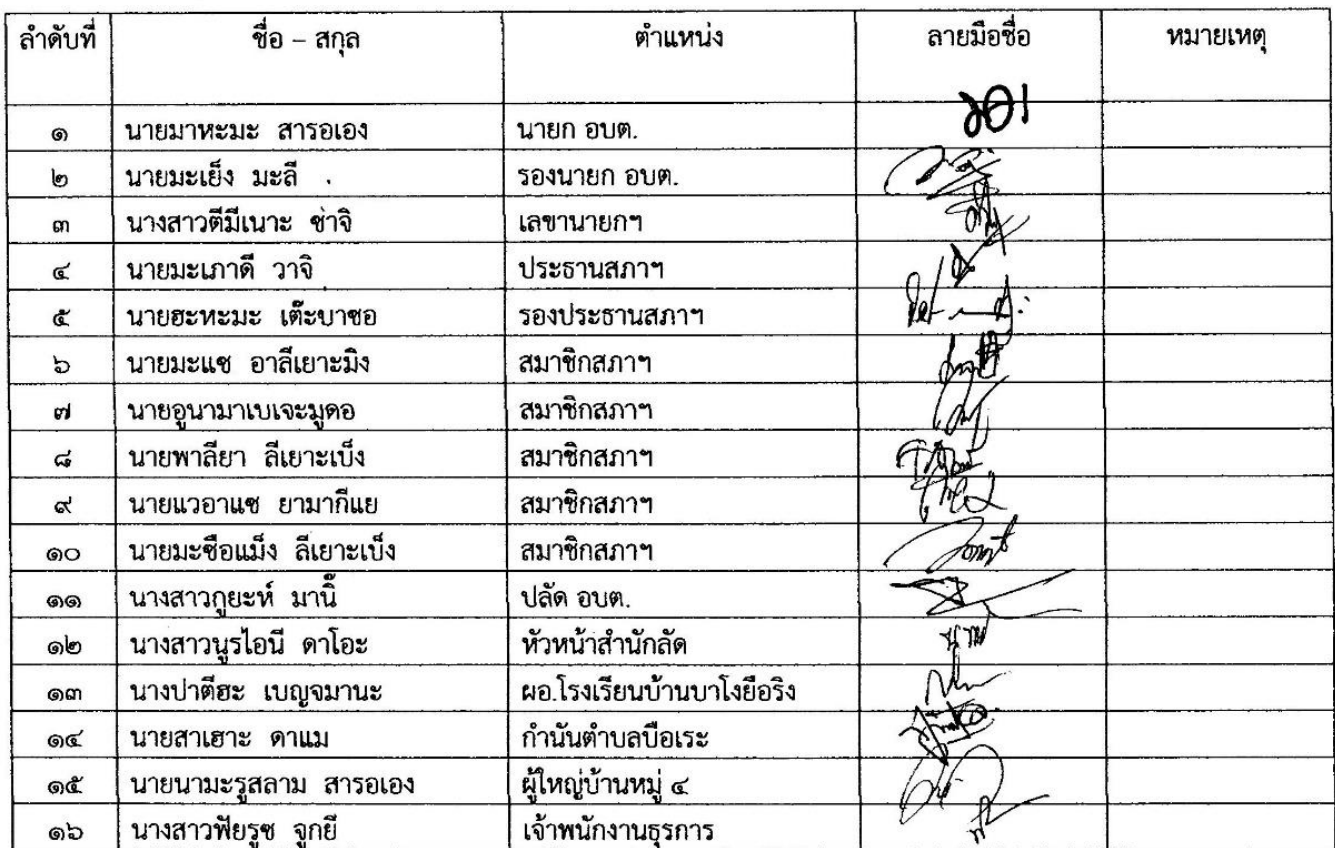 ลำดับที่ ชื่อ – สกุล ตำแหน่ง ลายมือชื่อ หมายเหตุ
๑ นายมาหะมะ สารอเอง นายก อบต.
๒ นายมะเย็ง มะลี รองนายก อบต.
๓ นางสาวตีมีเนาะ ซ่าจิ เลขานายกฯ
๔ นายมะเภาดี วาจิ ประธานสภาฯ
๕ นายฮะหะมะ เต๊ะบาซอ รองประธานสภาฯ
๖ นายมะแซ อาลีเยาะมิง สมาชิกสภาฯ
๗ นายอูนามาเบเจะมูดอ สมาชิกสภาฯ
๘ นายพาลียา ลีเยาะเบ็ง สมาชิกสภาฯ
๙ นายแวอาแซ ยามากีแย สมาชิกสภาฯ
๑๐ นายมะซือแม็ง ลีเยาะเบ็ง สมาชิกสภาฯ
๑๑ นางสาวกูยะห์ มานิ๊ ปลัด อบต.
๑๒ นางสาวนูรไอนี ดาโอะ หัวหน้าสำนักลัด
๑๓ นางปาตีฮะ เบญจมานะ ผอ.โรงเรียนบ้านบาโงยือริง
๑๔ นายสาเฮาะ ดาแม กำนันตำบลบือเระ
๑๕ นายนามะรูสลาม สารอเอง ผู้ใหญ่บ้านหมู่ ๔
๑๖ นางสาวฟัยรูซ จูกยี เจ้าพนักงานธุรการ